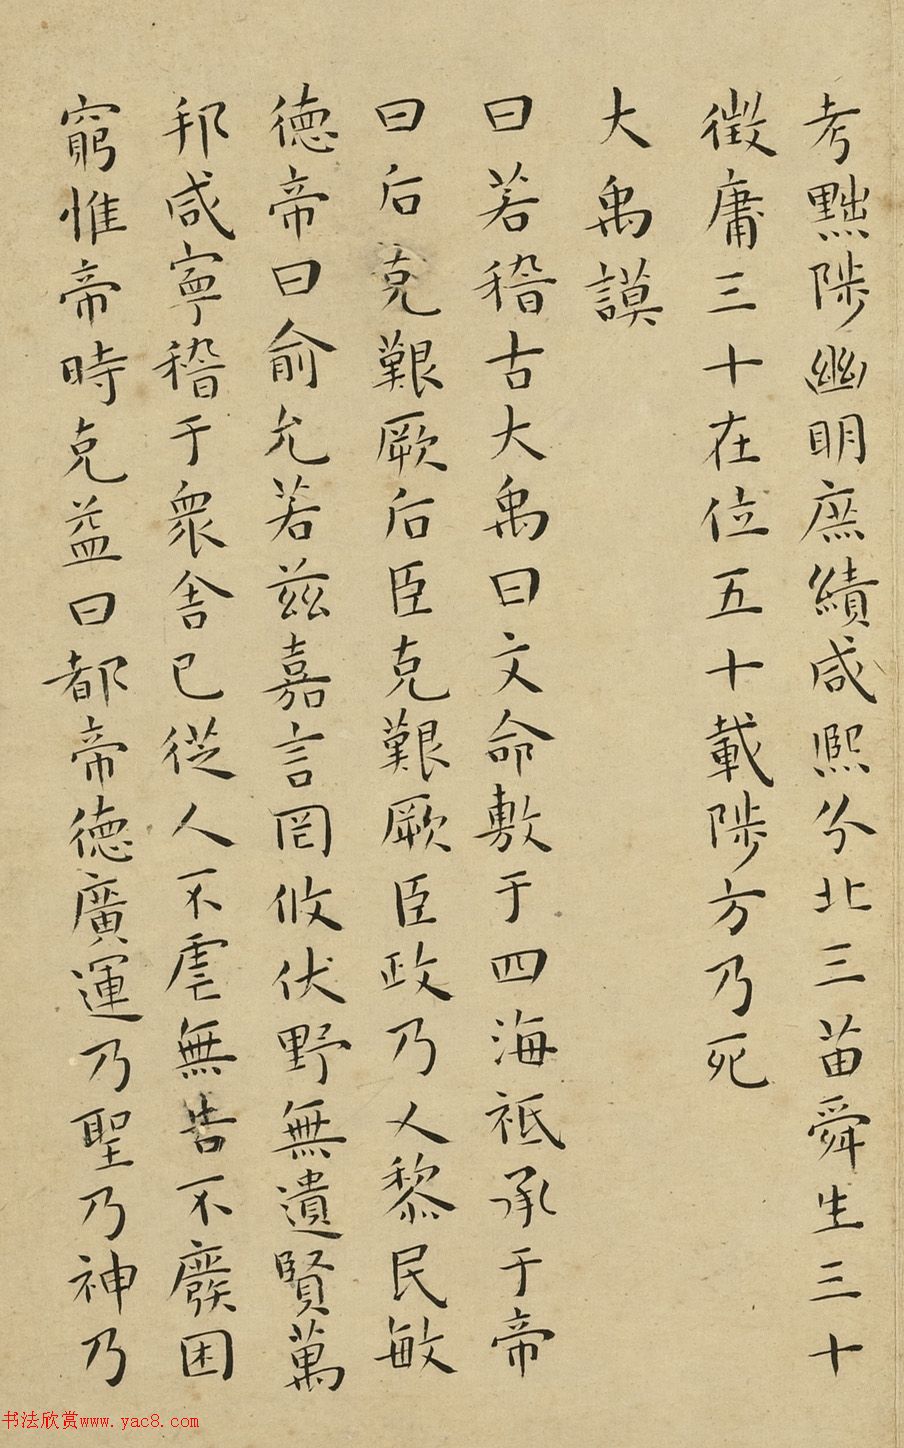 考黜陟幽明庶績咸熙分北三苗舜生三十
徵庸三十在位五十載陟方乃死
大禹謨
曰若稽古大禹曰文命敷于四海祗承于帝
曰后克艱厥后臣克艱厥臣政乃乂黎民敏
德帝曰俞允若茲嘉言罔攸伏野無遺賢萬
邦咸寧稽于衆舍己從人不虐無告不廢困
窮惟帝時克益曰都帝德廣運乃聖乃神乃
书法欣赏www.yac8.com